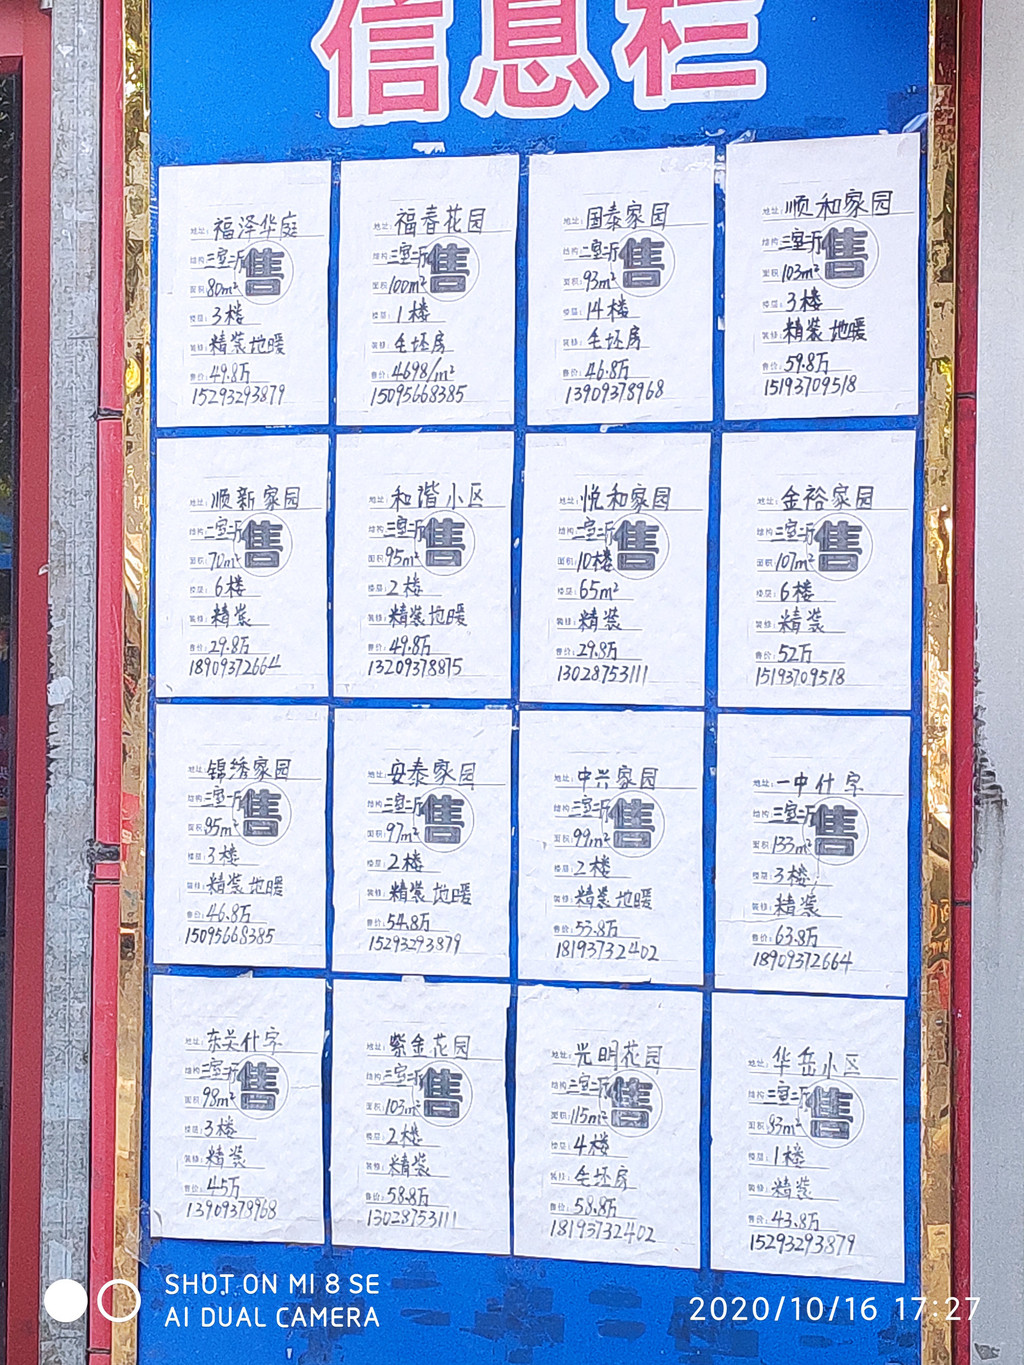 信息栏
地址：福泽华庭
结构：三室二厅
面积：80m²
3楼
装修：精装 地暖
售价：49.8万
15293293879
售
地址：福春花园
结构：三室二厅
面积：100m²
楼层：1楼
装修：毛坯房
售价：4698/m²
15095668385
售
地址：国泰家园
结构：二室二厅
面积：93m²
楼层：14楼
装修：毛坯房
售价：46.8万
13909378968
售
地址：顺和家园
结构：三室二厅
面积：103m²
楼层：3楼
精装 地暖
售价：59.8万
15193709518
售
地址：顺新家园
结构：二室二厅
面积：70m²
楼层：6楼
装修：精装
售价：29.8万
18909372664
售
地址：和谐小区
结构：三室二厅
面积：95m²
楼层：2楼
精装 地暖
售价：49.8万
13209378875
售
地址：悦和家园
结构：二室二厅
面积：10楼
楼层：65m²
装修：精装
售价：29.8万
13028753111
售
地址：金裕家园
结构：三室二厅
面积：107m²
楼层：6楼
装修：精装
售价：52万
15193709518
售
地址：锦绣家园
结构：三室二厅
面积：95m²
楼层：3楼
装修：精装 地暖
售价：46.8万
15095668385
售
地址：安泰家园
结构：三室二厅
面积：97m²
楼层：2楼
装修：精装 地暖
售价：54.8万
15293293879
售
地址：中兴家园
结构：三室二厅
面积：99m²
楼层：2楼
装修：精装 地暖
售价：53.8万
18193732402
售
地址：一中什字
结构：三室二厅
面积：133m²
楼层：3楼
装修：精装
售价：63.8万
18909372664
售
地址：东关什字
结构：三室二厅
面积：98m²
楼层：3楼
装修：精装
售价：45万
13909379968
售
地址：紫金花园
结构：三室二厅
面积：103m²
楼层：2楼
装修：精装
售价：58.8万
13028753111
售
地址：光明花园
结构：三室二厅
面积：115m²
楼层：4楼
装修：毛坯房
售价：58.8万
18193732402
售
地址：华岳小区
结构：三室二厅
面积：83m²
楼层：1楼
装修：精装
售价：43.8万
15293293879
售
SHOT ON MI 8 SE
AI DUAL CAMERA
2020/10/16 17:27